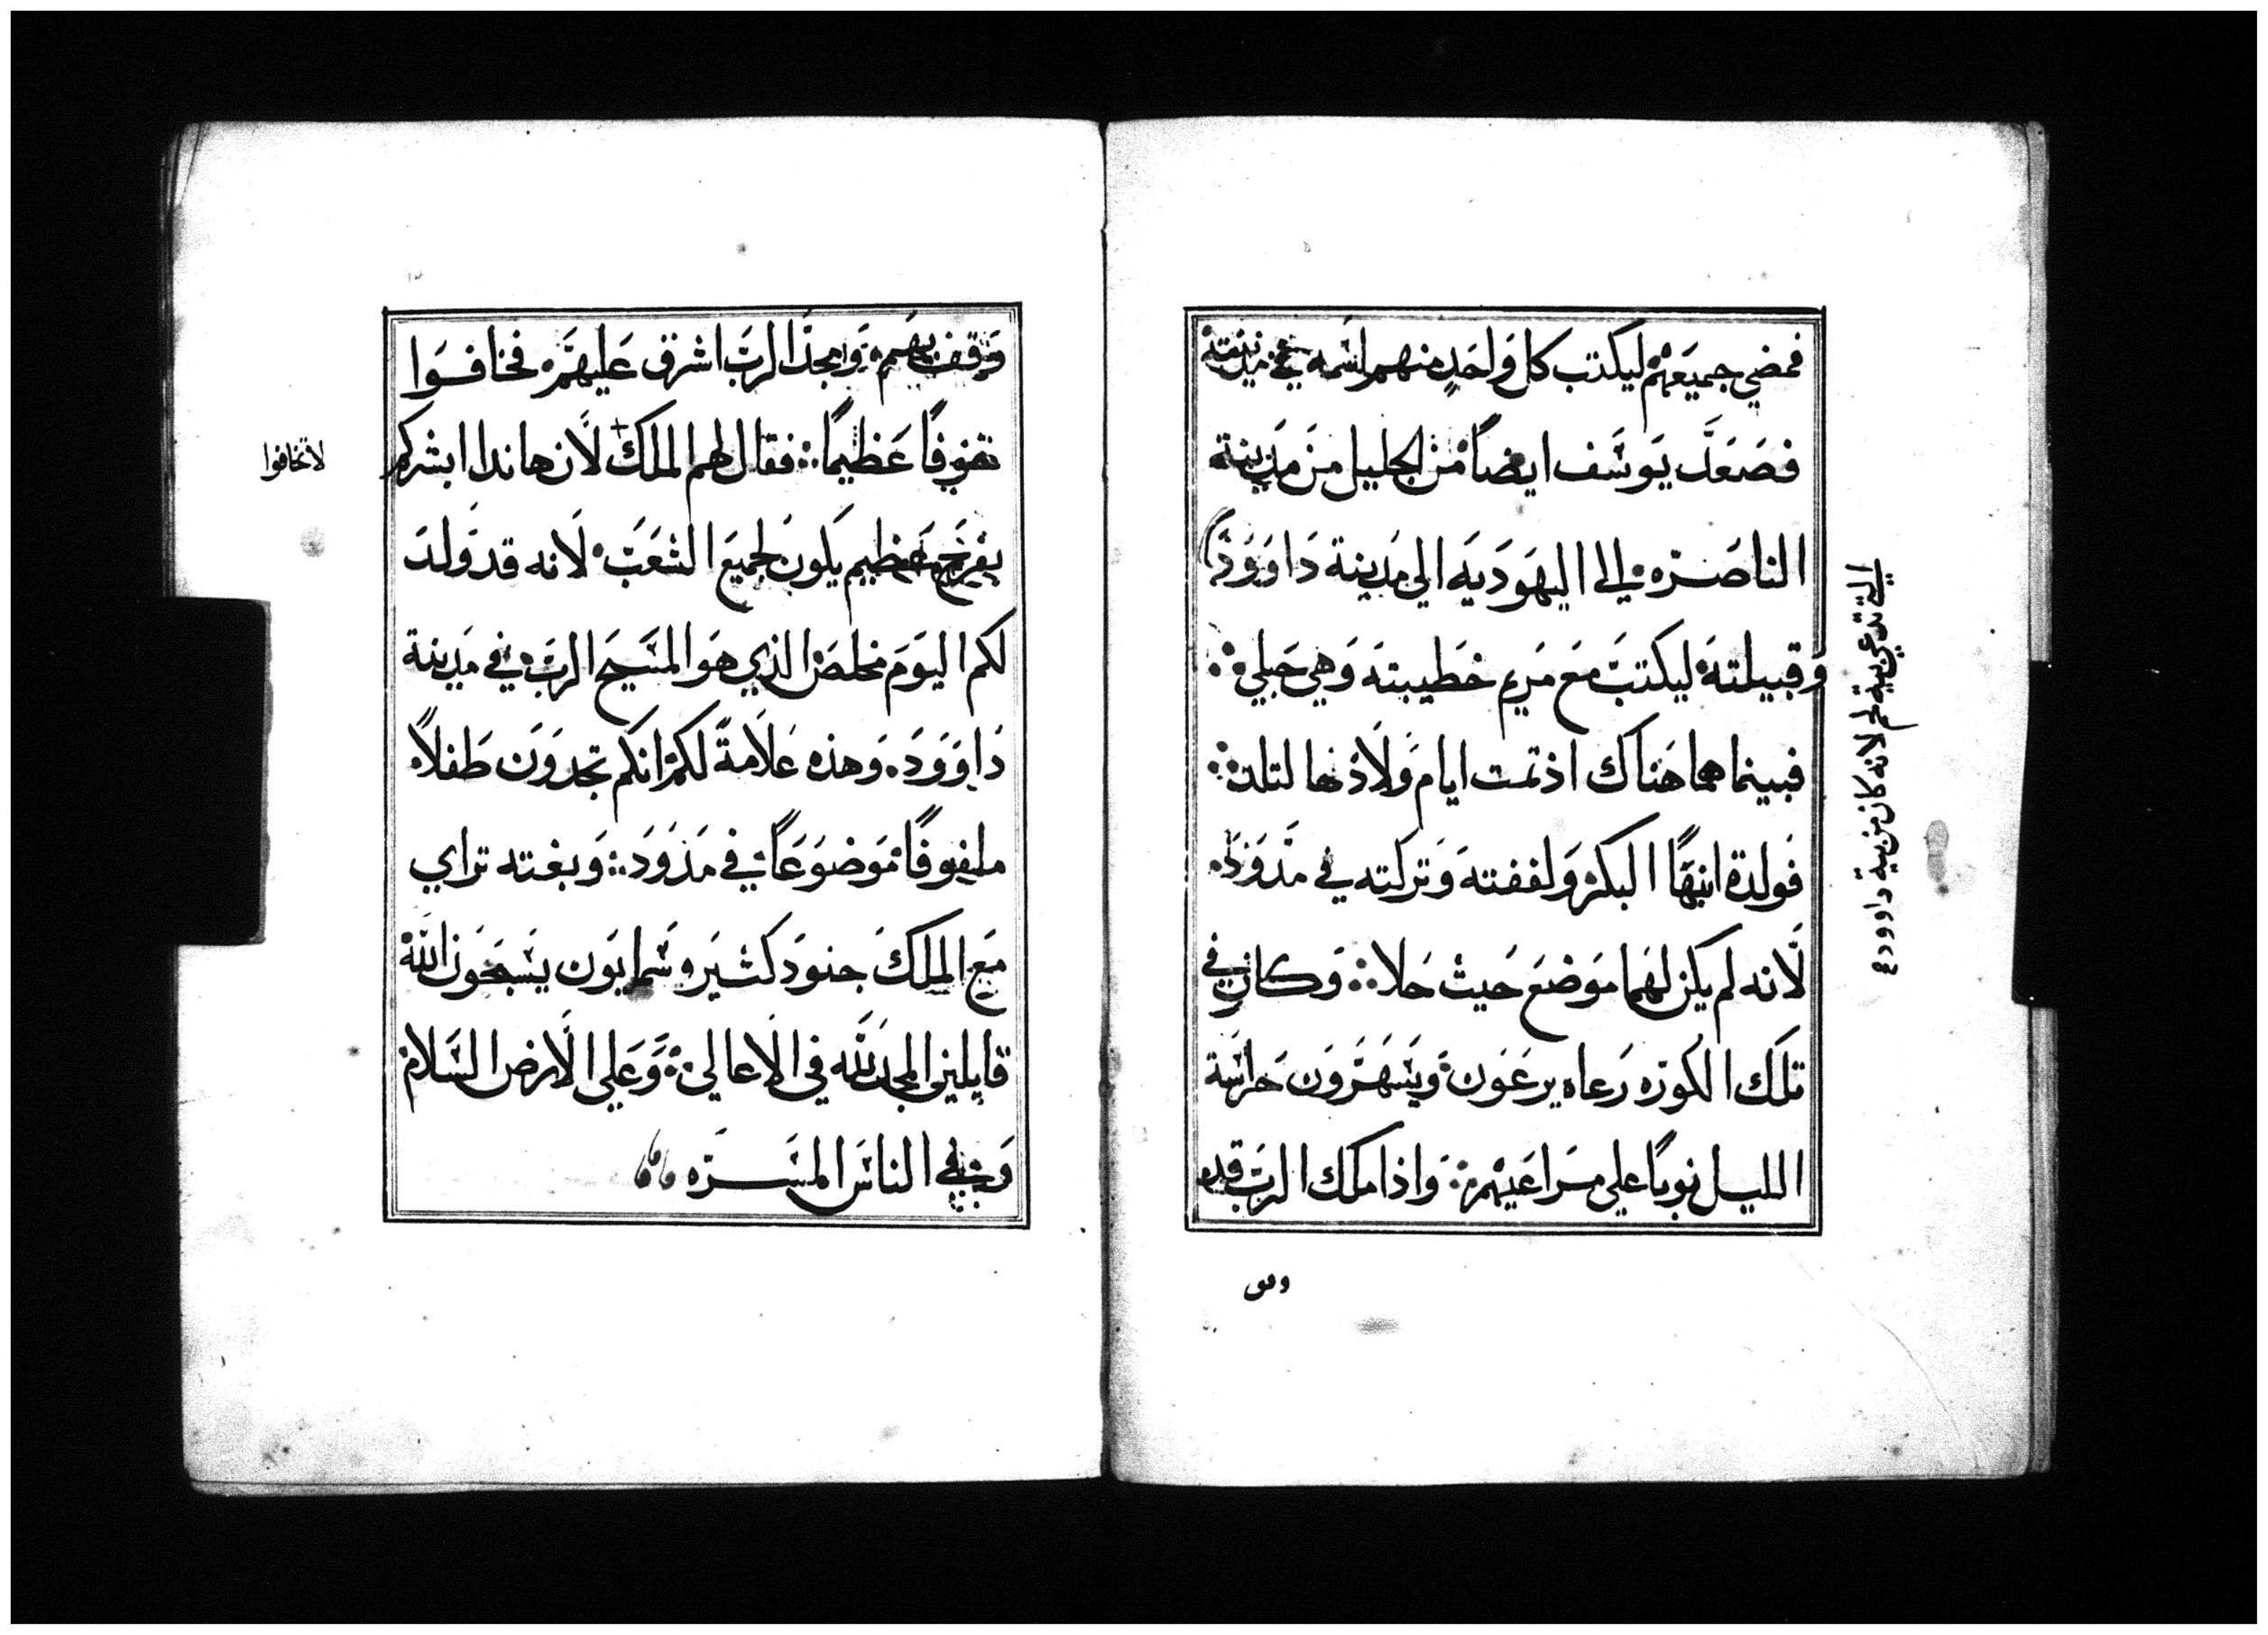 فمضي جميعهم ليكتب كل واحد منهم اسمه في مدينته
فصعد يوسف ايضاً من الجليل من مدينة
الناصره الى اليهوديه الي مدينة داوود
وقبيلته ليكتب مع مريم خطيبته وهي حبلي
فبينما هما هناك اذ تمت ايام ولادتها لتلد
فولدة ابنها البكر ولففته وتركته في مدود
لانه لم يكن لهما موضع حيث حلا وكان في
تلك الكوره رعاه يرعون ويسهرون حراسة
الليل نوباً علي مراعيهم واذا ملك الرب قد
التي تدعي بية لحم لانه كان من بية داوود
وقف بهم ومجد الرب اشرق عليهم فخافوا
خوفاً عظيماً فقال لهم الملك لان هاندا ابشركم
لا تخافوا
بفرح عظيم يكون لجميع الشعب لانه قد ولد
لكم اليوم مخلص الذي هو المسيح الرب في مدينة
داوود وهذه علامة لكم انكم تجدون طفلاً
ملفوفاً موضوعاً في مدود وبغته تراي
مع الملك جنود كثير وسمايون يسبحون الله
قايلين المجد لله في الاعالي وعلي الارض السلام
وفي الناس المسره